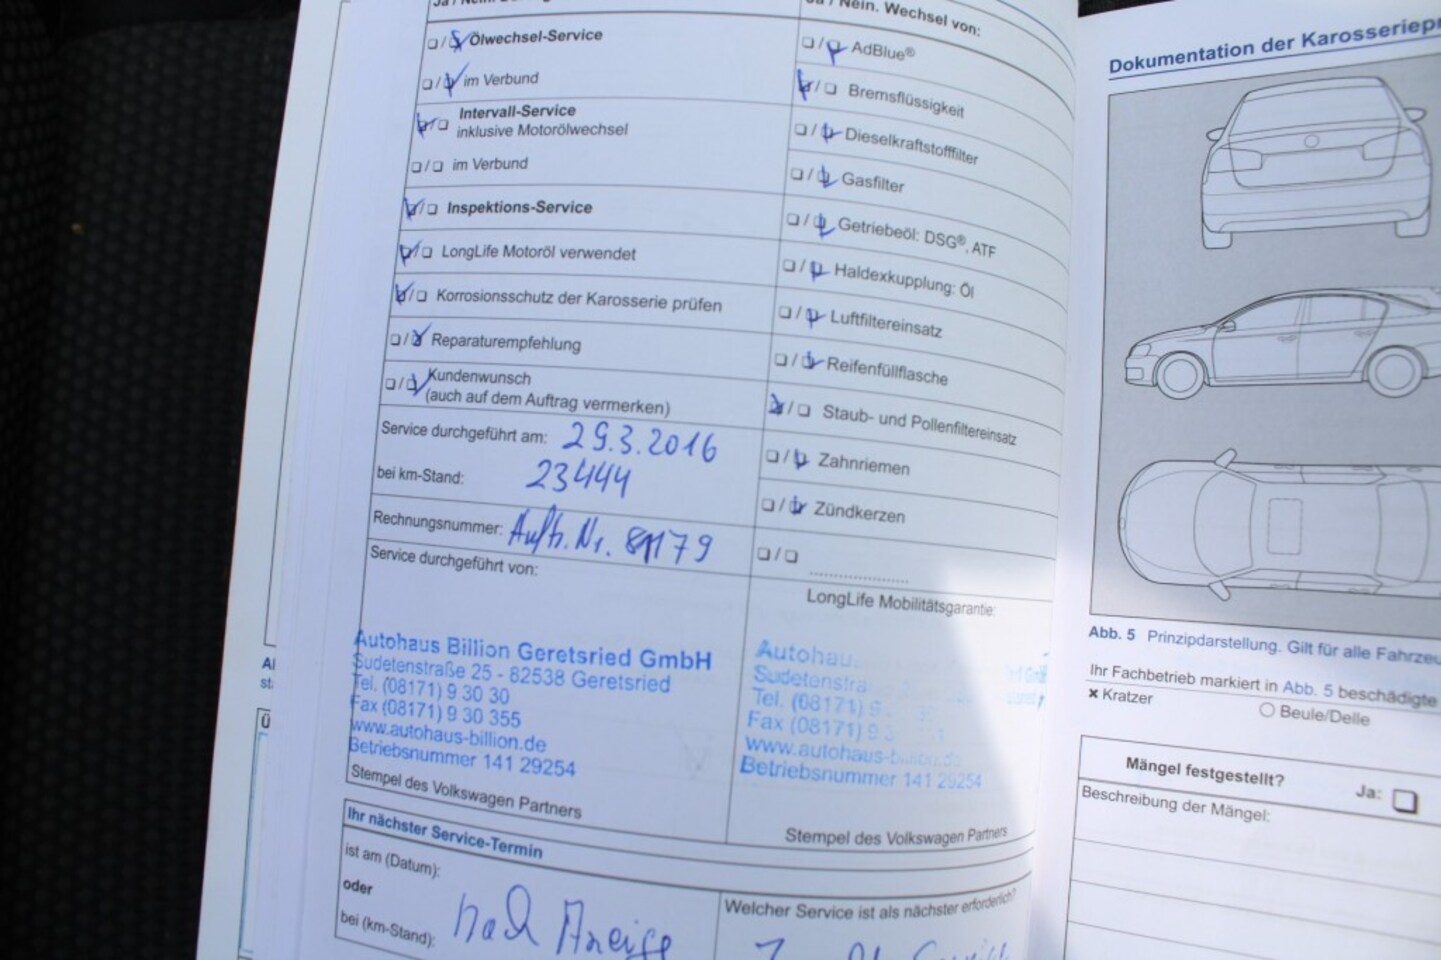 Nein. Wechsel von:
❏ / ❏ Ölwechsel-Service
❏ / ❏ im Verbund
❏ / ❏ Intervall-Service
inklusive Motorölwechsel
❏ / ❏ im Verbund
❏ / ❏ Inspektions-Service
❏ / ❏ LongLife Motoröl verwendet
❏ / ❏ Korrosionsschutz der Karosserie prüfen
❏ / ❏ Reparaturempfehlung
❏ / ❏ Kundenwunsch
(auch auf dem Auftrag vermerken)
Service durchgeführt am: 29.3.2016
bei km-Stand: 23444
Rechnungsnummer: Auftr. Nr. 81179
Service durchgeführt von:
Autohaus Billion Geretsried GmbH
Sudetenstraße 25 - 82538 Geretsried
Tel. (08171) 9 30 30
Fax (08171) 9 30 355
www.autohaus-billion.de
Betriebsnummer 141 29254
Stempel des Volkswagen Partners
❏ / ❏ AdBlue®
❏ / ❏ Bremsflüssigkeit
❏ / ❏ Dieselkraftstofffilter
❏ / ❏ Gasfilter
❏ / ❏ Getriebeöl: DSG®, ATF
❏ / ❏ Haldexkupplung: Öl
❏ / ❏ Luftfiltereinsatz
❏ / ❏ Reifenfüllflasche
❏ / ❏ Staub- und Pollenfiltereinsatz
❏ / ❏ Zahnriemen
❏ / ❏ Zündkerzen
❏ / ❏ ....................
LongLife Mobilitätsgarantie:
Tel. (08171) 9
Fax (08171) 9 3
www.autohaus-billion.de
Betriebsnummer 141 29254
Stempel des Volkswagen Partners
Ihr nächster Service-Termin
ist am (Datum):
oder
bei (km-Stand): nach Anzeige
Welcher Service ist als nächster erforderlich?
Dokumentation der
Abb. 5 Prinzipdarstellung. Gilt für alle
Ihr Fachbetrieb markiert in Abb. 5 beschädigte
× Kratzer ○ Beule/Delle
Mängel festgestellt? Ja: ❏
Beschreibung der Mängel: